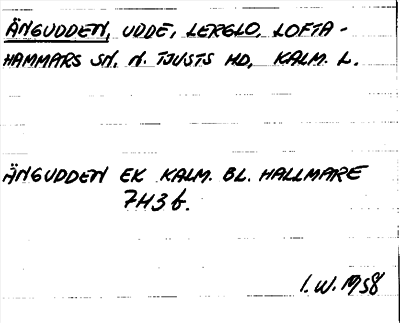 ÄNGUDDEN, UDDE, LERGLO, LOFTA-
HAMMARS SN. N. TJUSTS HD, KALM. L.
ÄNGUDDEN EK KALM. BL. HALLMARE
7H3 b.
I. W. 1958